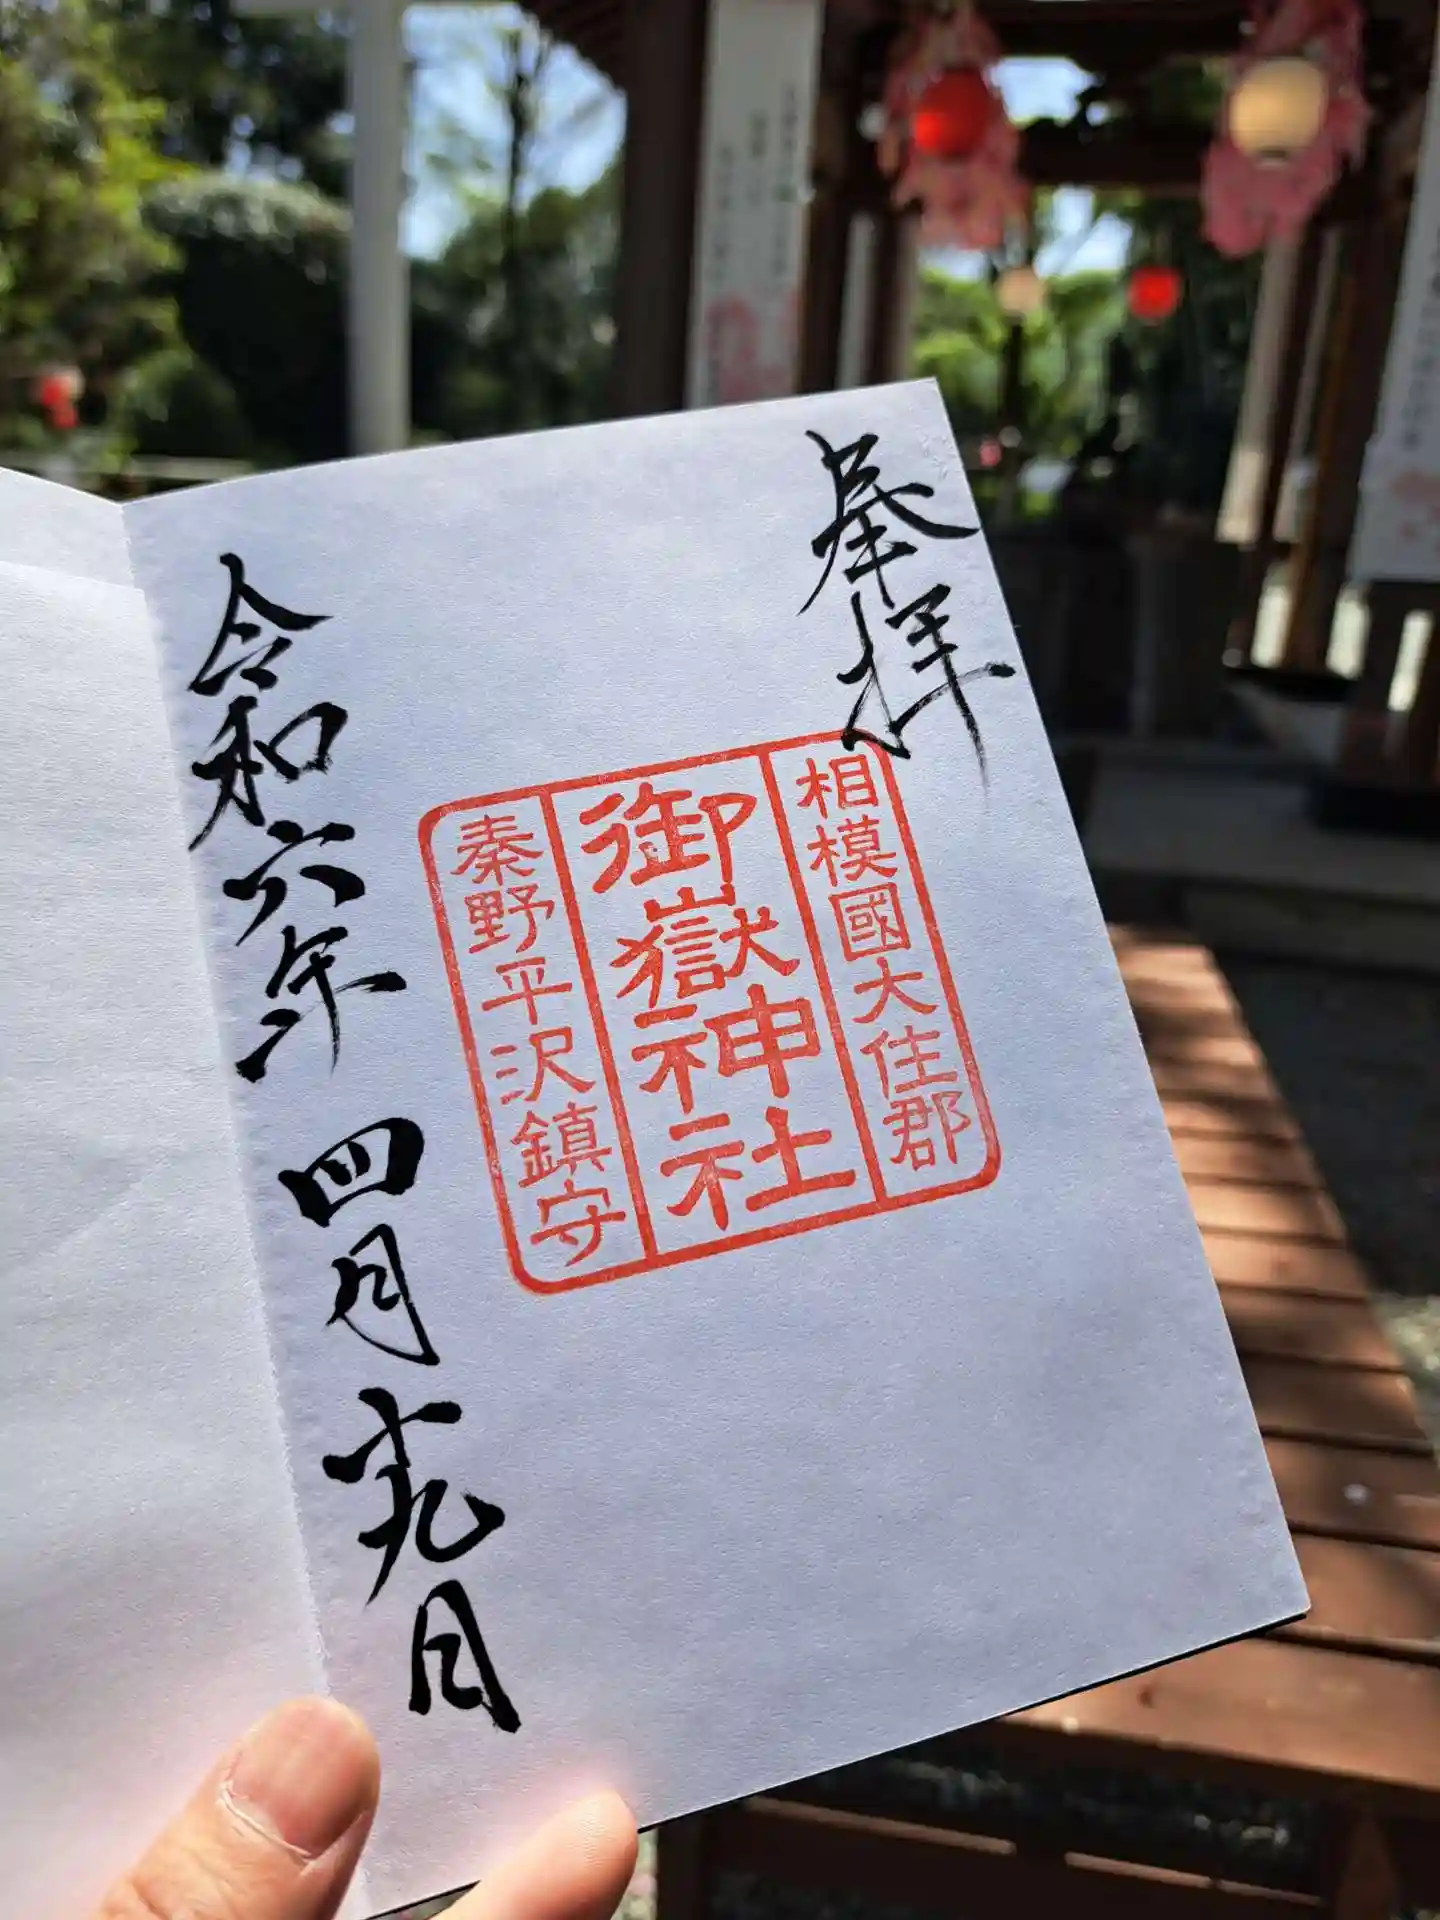 奉拝
相模國大住郡
御嶽神社
秦野平沢鎮守
令和六年 四月十九日